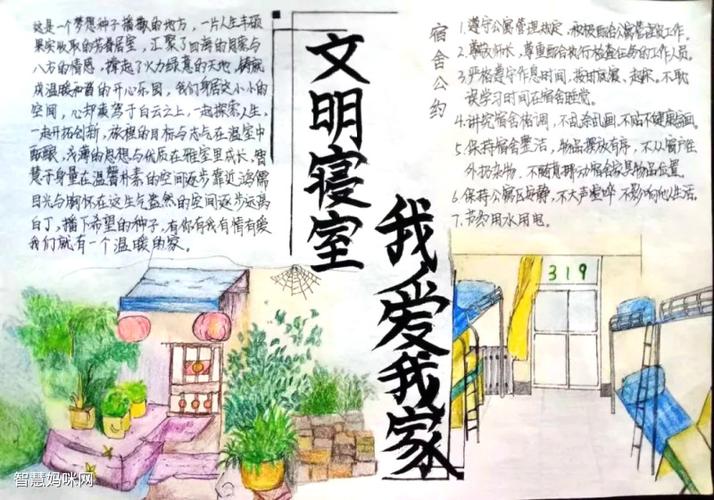 这是一个梦想种子播撒的地方，一片人生丰硕
果实收取的芳香居室，汇聚了四海的与
八方的情感，撑起了火力绿意的天地，铸就
成温暖和谐的开心乐园，我们身居这小小的
空间，心却乘驾于白云之上，一起探索人生，
一起开拓创新，旅程的目标与志气在温室中
酝酿，浅薄的思想与优质在雅室里成长，智
慧于身量在温馨朴素的空间逐步靠近鸿儒
目光与胸怀在这生气盎然的空间逐步远离
白丁，播下希望的种子，有你有我有情有爱
我们就有一个温暖的家。
文明寝室
我爱我家
宿舍公约
1.遵守公寓管理规定，积极配合公寓管理员工作。
2.尊敬师长，尊重配合执行检查任务的工作人员。
3.严格遵守作息时间，按时就寝、起床，不耽
误学习时间在宿舍睡觉。
4.讲究宿舍格调，不乱涂乱画，不贴不健康画。
5.保持宿舍整洁，物品摆放有序，不从窗户往
外扔杂物，不随意挪动宿舍家具物品位置。
6.保持公寓区安静，不大声喧哗，不影响他人生活。
7.节约用水用电。
319
智慧妈咪网